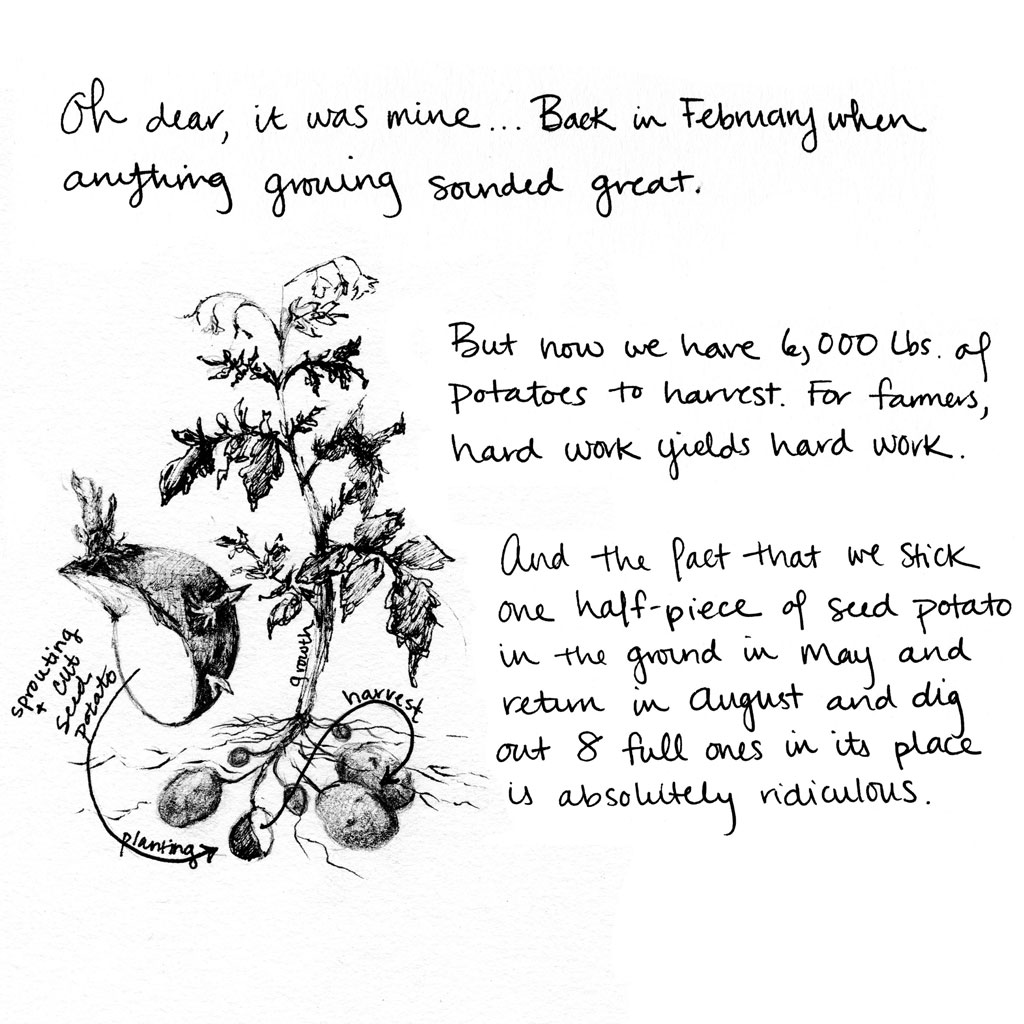 Oh dear, it was mine... Back in February when
anything growing sounded great.
But now we have 6,000 lbs. of
potatoes to harvest. For farmers,
hard work yields hard work.
And the fact that we stick
one half-piece of seed potato
in the ground in May and
return in August and dig
out 8 full ones in its place
is absolutely ridiculous.
sprouting
+ cut
seed
potato
growth
harvest
planting